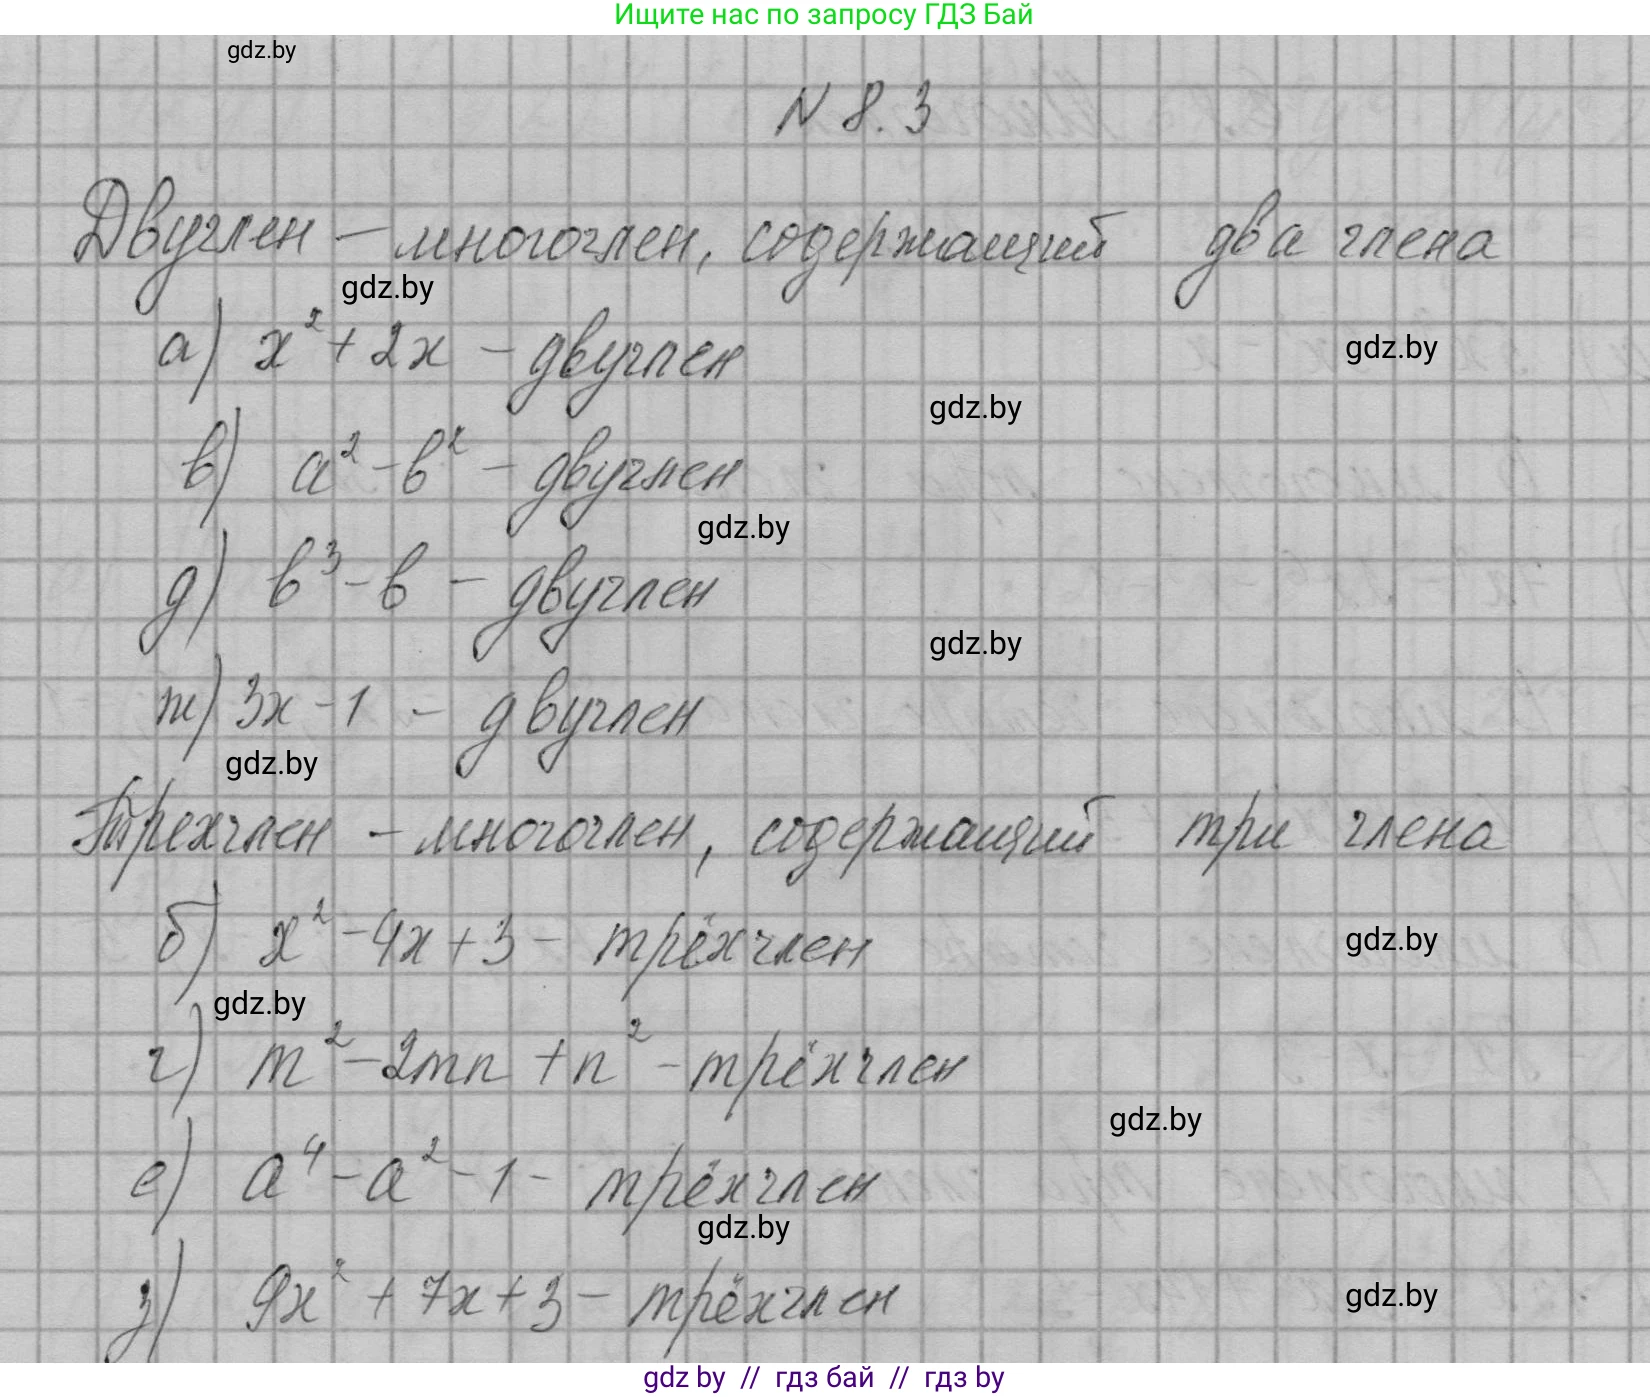 Ищите нас по запросу ГДЗ Бай
gdz.by
N 8.3
Двучлен – многочлен, содержащий два члена
gdz.by
а) x² + 2x – двучлен
gdz.by
gdz.by
в) a² – b² – двучлен
gdz.by
д) b³ – b – двучлен
gdz.by
ж) 3x – 1 – двучлен
gdz.by
Трехчлен – многочлен, содержащий три члена
б) x² – 4x + 3 – трёхчлен
gdz.by
gdz.by
г) m² – 2mn + n² – трёхчлен
gdz.by
е) a⁴ – a² – 1 – трёхчлен
gdz.by
з) 9x² + 7x + 3 – трёхчлен
gdz.by
gdz by // гдз бай // гдз by